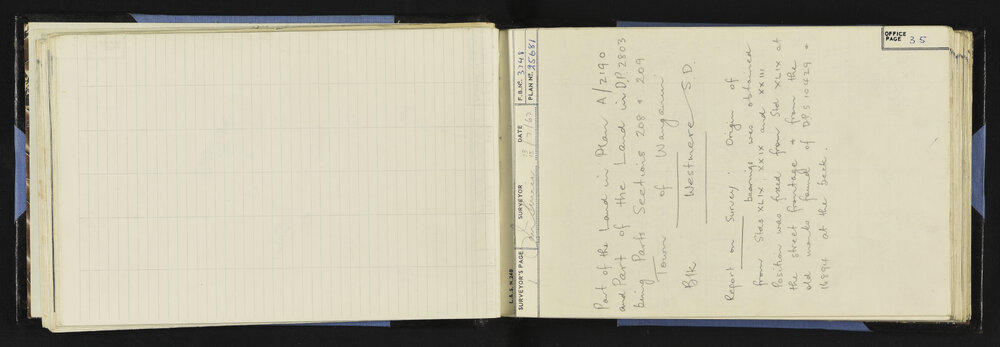 OFFICE PAGE 35
L. & S. N. 24B
SURVEYOR'S PAGE 1 SURVEYOR DATE 13/7/67 F.B. Nº. 3748
PLAN Nº. 25681
Part of the Land in Plan A/2190
and Part of the Land in DP 2803
being Parts Sections 208 & 209
Town of Wanganui
Blk Westmere S.D.
Report on Survey: Origin of
bearings was obtained
from Stds XLIX, XXIX and XXIII
Position was fixed from Std XLIX at
the street frontage & from the
old marks found of DPs 10429 &
16894 at the back.